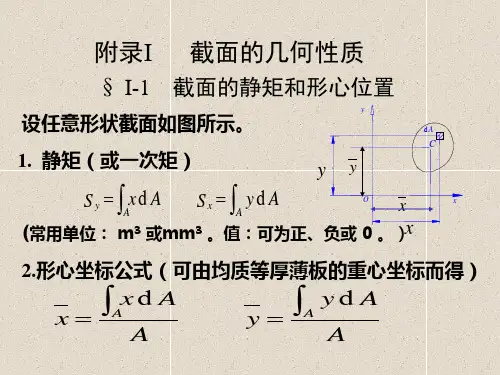 附录I 截面的几何性质
§ I-1 截面的静矩和形心位置
设任意形状截面如图所示。
y
dA
C
1. 静矩（或一次矩）
y
y̅
S_y = ∫_A x d A S_x = ∫_A y d A
O
x̅
x
(常用单位： m³ 或mm³ 。值：可为正、负或 0 。 )
x
2.形心坐标公式（可由均质等厚薄板的重心坐标而得）
x̅ = ∫_A x d A / A y̅ = ∫_A y d A / A